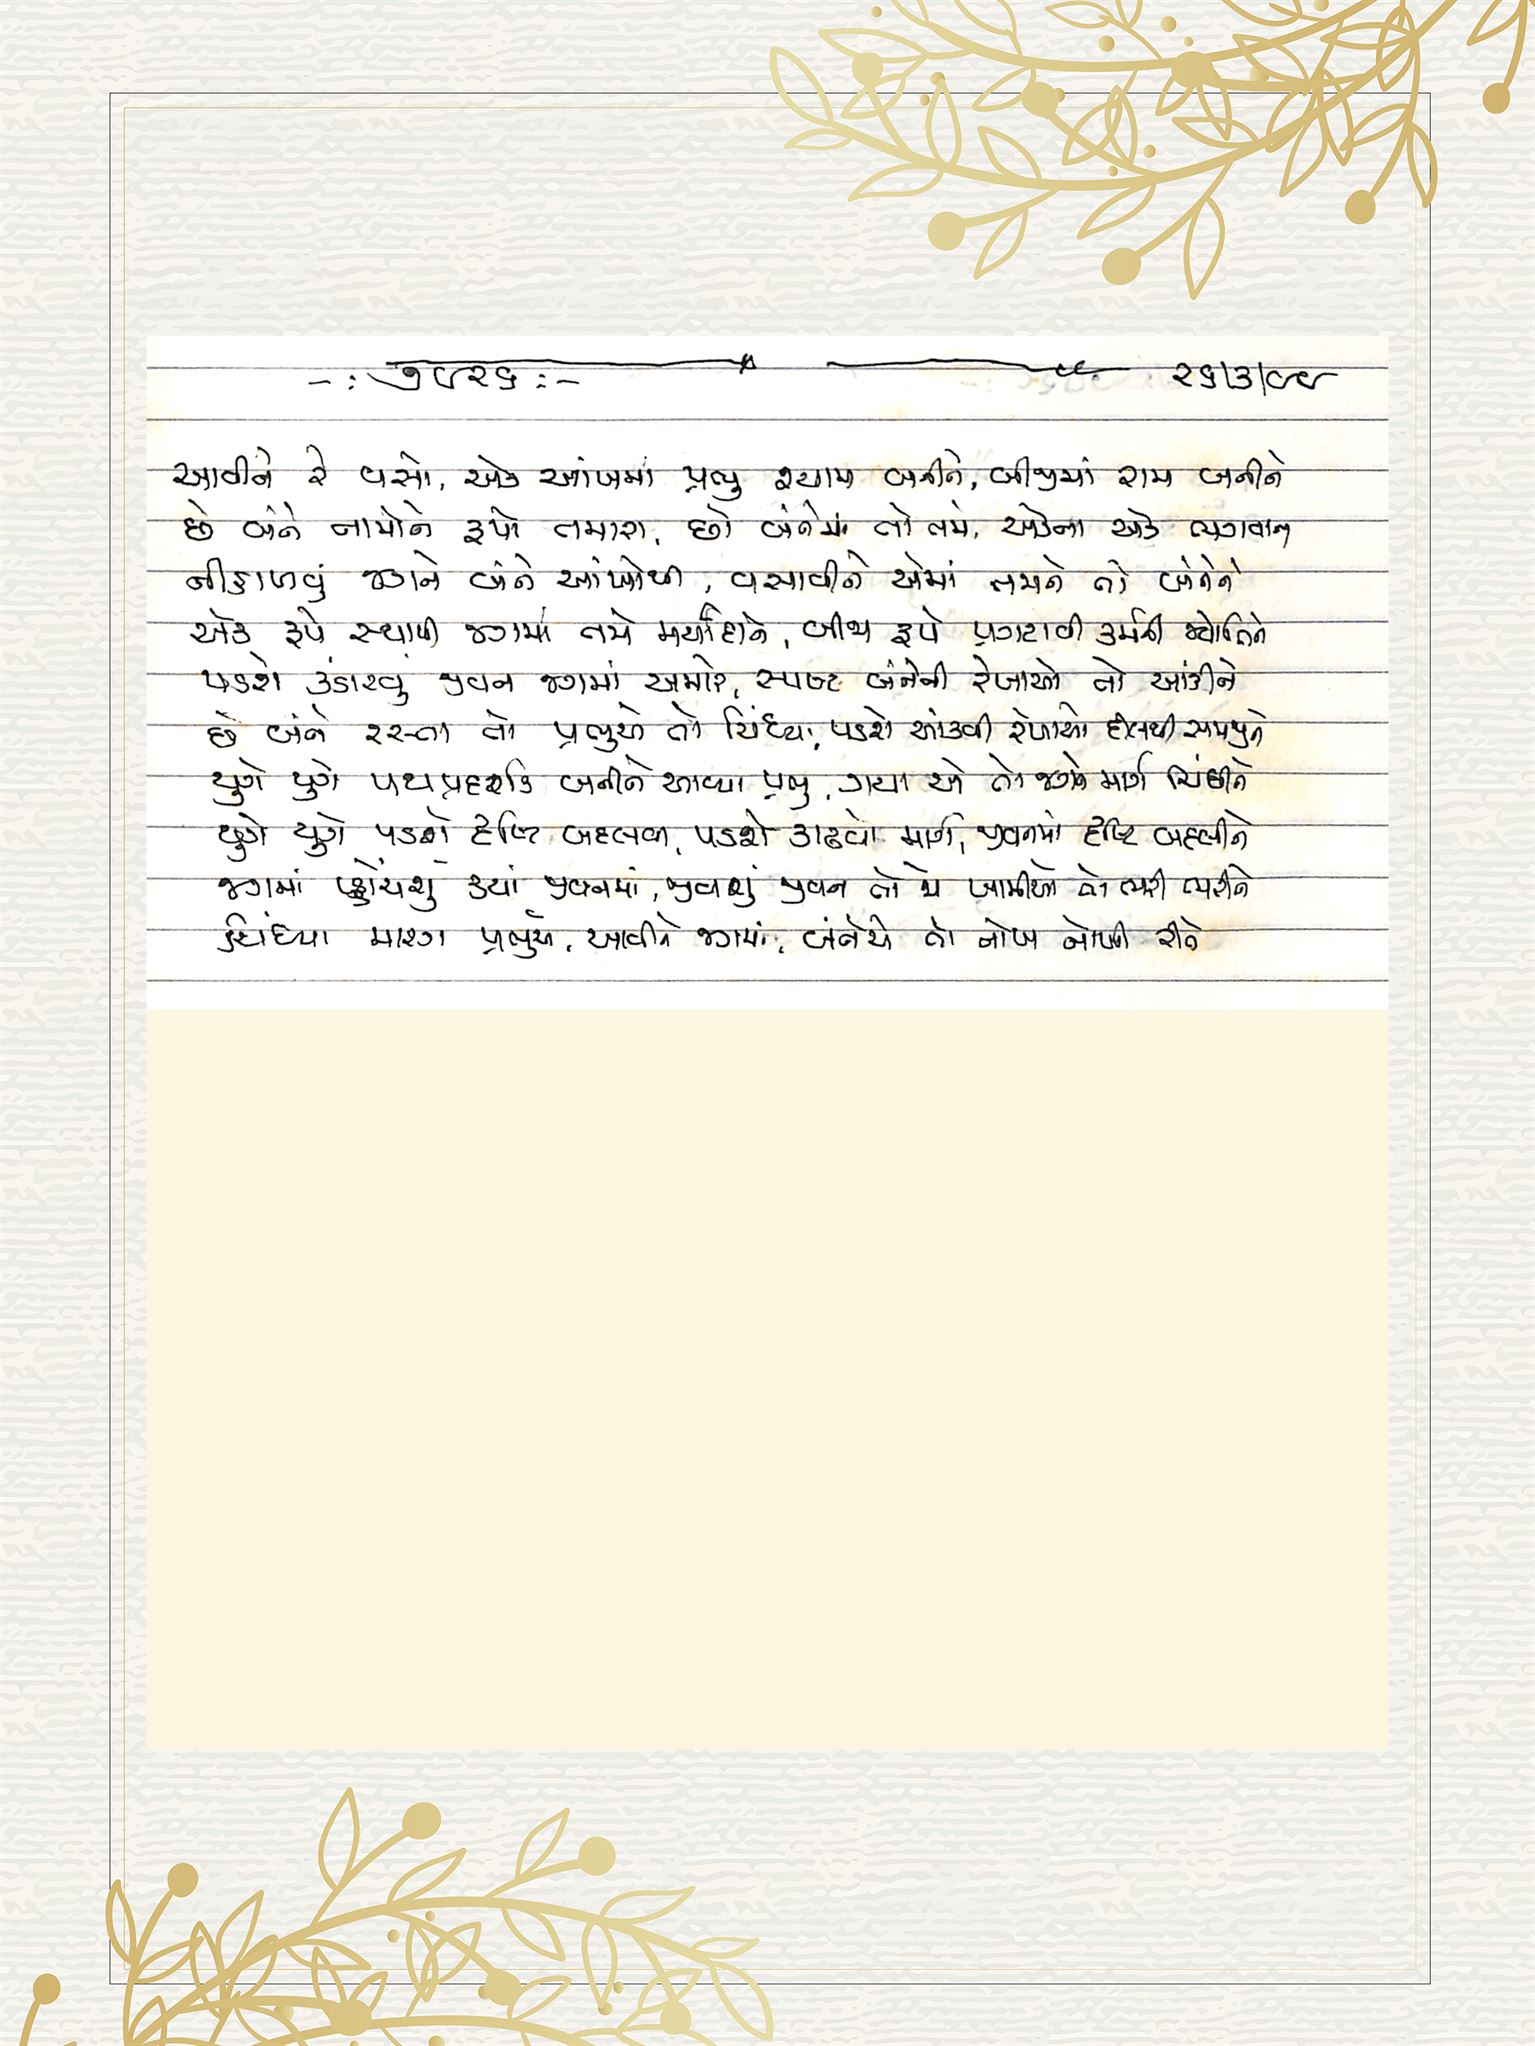 -: ૭૯૨૬ :- ૨૬/૩/૯૯
આવીને રે વસો, એક આંખમાં પ્રભુ શ્યામ બનીને, બીજીમાં રામ બનીને
છે બંને નામોને રૂપો તમારા, છો બંનેમાં તો તમે, એકના એક ભગવાન
નીહાળવું જગને બંને આંખોથી, વસાવીને એમાં તમને તો બંનેને
એક રૂપે સ્થાપી જગમાં તમે મર્યાદાને, બીજા રૂપે પ્રગટાવી કર્મની જ્યોતિને
પડશે કંડારવું જીવન જગમાં અમારે, સ્પષ્ટ બંનેની રેખાઓ તો આંકીને
છે બંને રસ્તા તો પ્રભુએ તો ચિંધ્યા, પડશે આંકવી રેખાઓ દીલથી સમજીને
યુગે યુગે પથપ્રદર્શક બનીને આવ્યા પ્રભુ, ગયા એ તો જગને માર્ગ ચિંધીને
યુગે યુગે પડશે દૃષ્ટિ બદલવી, પડશે કાઢવો માર્ગ, જીવનમાં દૃષ્ટિ બદલીને
જગમાં પ્હોંચશું ક્યાં જીવનમાં, જીવશું જીવન તો જે ખામીઓ તો ભરી ભરીને
ચિંધ્યા મારગ પ્રભુએ, આવીને જગમાં, બંનેએ તો નોખ નોખી રીતે